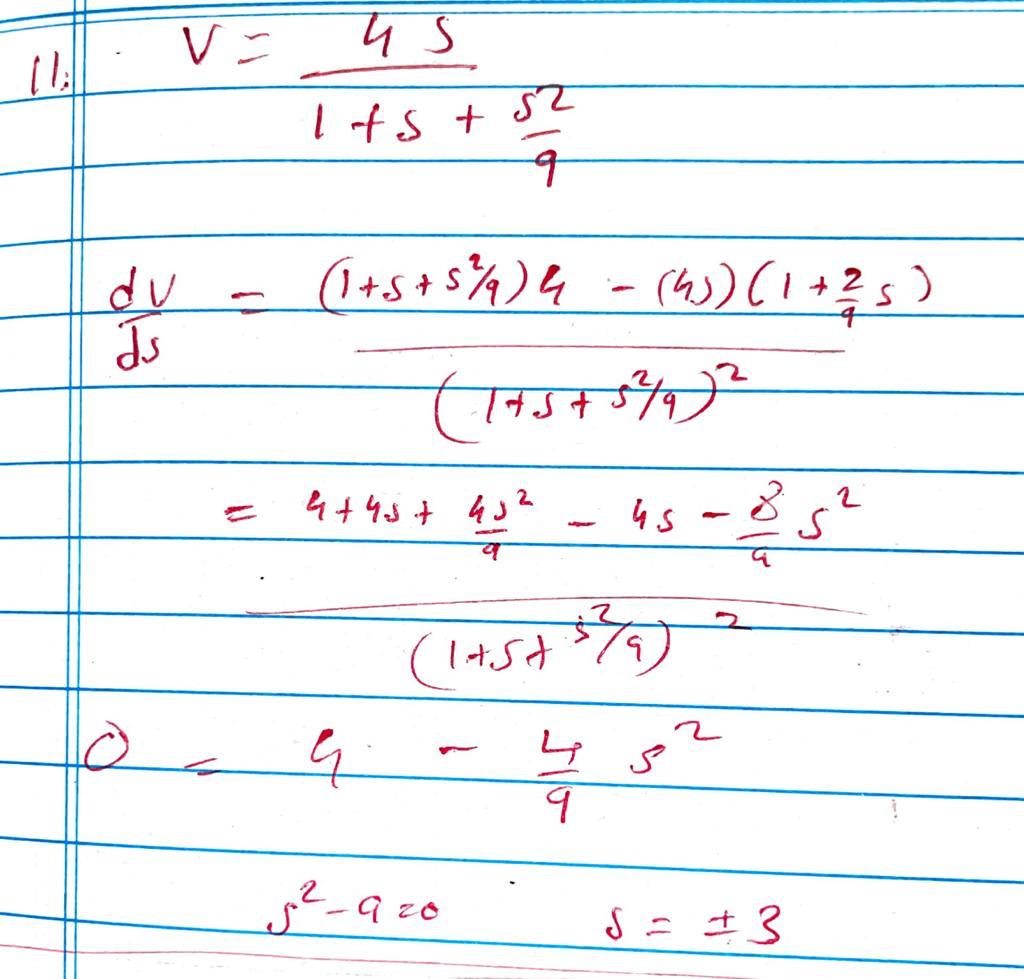 11. V = 4s / (1 + s + s²/9)
dv/ds = ((1+s+s²/9)4 - (4s)(1 + 2/9 s)) / (1+s+s²/9)²
= (4+4s+ 4s²/9 - 4s - 8/9 s²) / (1+s+s²/9)²
0 = 4 - 4/9 s²
s²-9=0 s = ±3